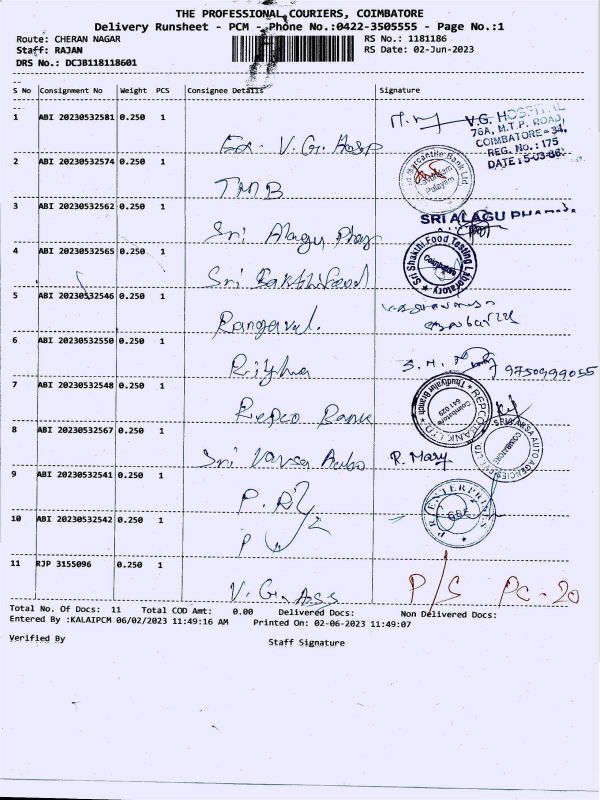 THE PROFESSIONAL COURIERS, COIMBATORE
Delivery Runsheet - PCM - Phone No.:0422-3505555 - Page No.:1
Route: CHERAN NAGAR RS No.: 1181186
Staff: RAJAN RS Date: 02-Jun-2023
DRS No.: DCJB118118601
S No Consignment No Weight PCS Consignee Details Signature
1 ABI 20230532581 0.250 1 V.G. Hosp
V.G. HOSPITAL
76A, M.T.P. ROAD,
COIMBATORE - 34.
REG. No.: 175
2 ABI 20230532574 0.250 1 TMB
3 ABI 20230532562 0.250 1 Sri Alagu Phar
SRI ALAGU
4 ABI 20230532565 0.250 1 Sri Sakthi Food
Sri Shakthi Food Testing Laboratory
Coimbatore
5 ABI 20230532546 0.250 1 Rangavel.
6 ABI 20230532550 0.250 1 9750999055
7 ABI 20230532548 0.250 1 Repco Bank
REPCO BANK LTD.
Thudiyalur Branch
Coimbatore
641 029
8 ABI 20230532567 0.250 1 Sri Varsa Auto R. Mary
AUTO AGENCIES
COIMBATORE
9 ABI 20230532541 0.250 1 P.R
P R ENTERPRISES
10 ABI 20230532542 0.250 1
11 RJP 3155096 0.250 1 V.G. Ass P/S PC-20
Total No. Of Docs: 11 Total COD Amt: 0.00 Delivered Docs: Non Delivered Docs:
Entered By :KALAIPCM 06/02/2023 11:49:16 AM Printed On: 02-06-2023 11:49:07
Verified By Staff Signature